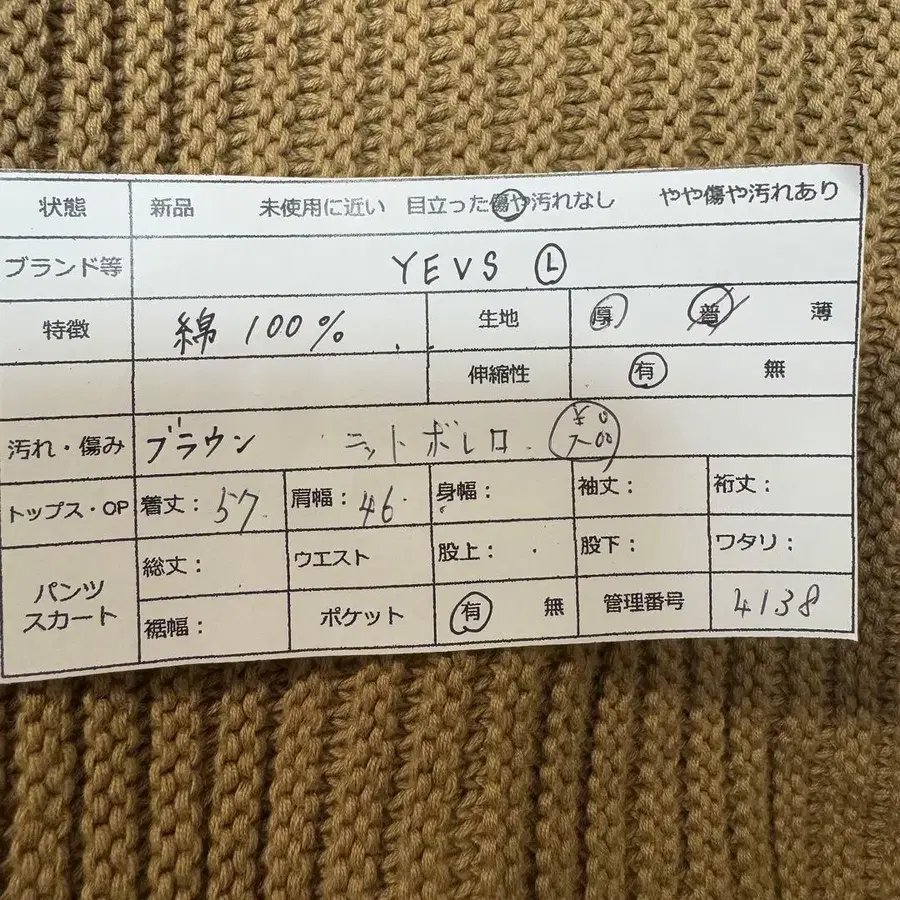 状態 新品 未使用に近い 目立った傷や汚れなし やや傷や汚れあり
ブランド等 YEVS Ⓛ
特徴 綿 100% 生地 厚 普 薄
伸縮性 有 無
汚れ・傷み ブラウン ニットボレロ
トップス・OP 着丈: 57 肩幅: 46 身幅: 袖丈: 裄丈:
パンツ スカート
総丈: ウエスト 股上: 股下: ワタリ:
裾幅: ポケット 有 無 管理番号 4138